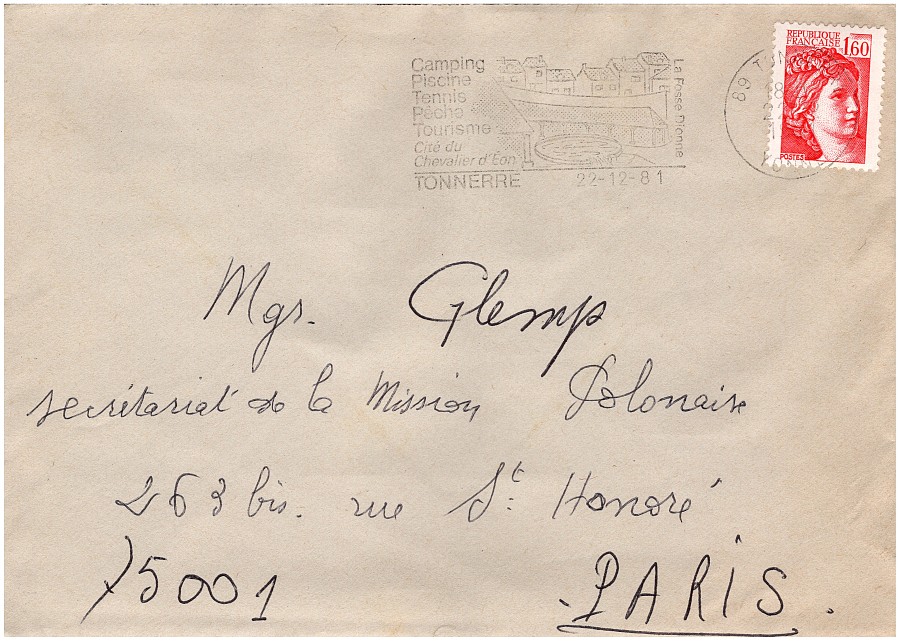 REPUBLIQUE
FRANÇAISE 1,60
POSTES
Camping
Piscine
Tennis
Pêche
Tourisme
Cité du
Chevalier d'Eon
TONNERRE 22-12-81
La Fosse Dionne
89
Mgr. Glemp
secrétariat de la Mission Polonaise
263 bis. rue St. Honoré
75001 PARIS.